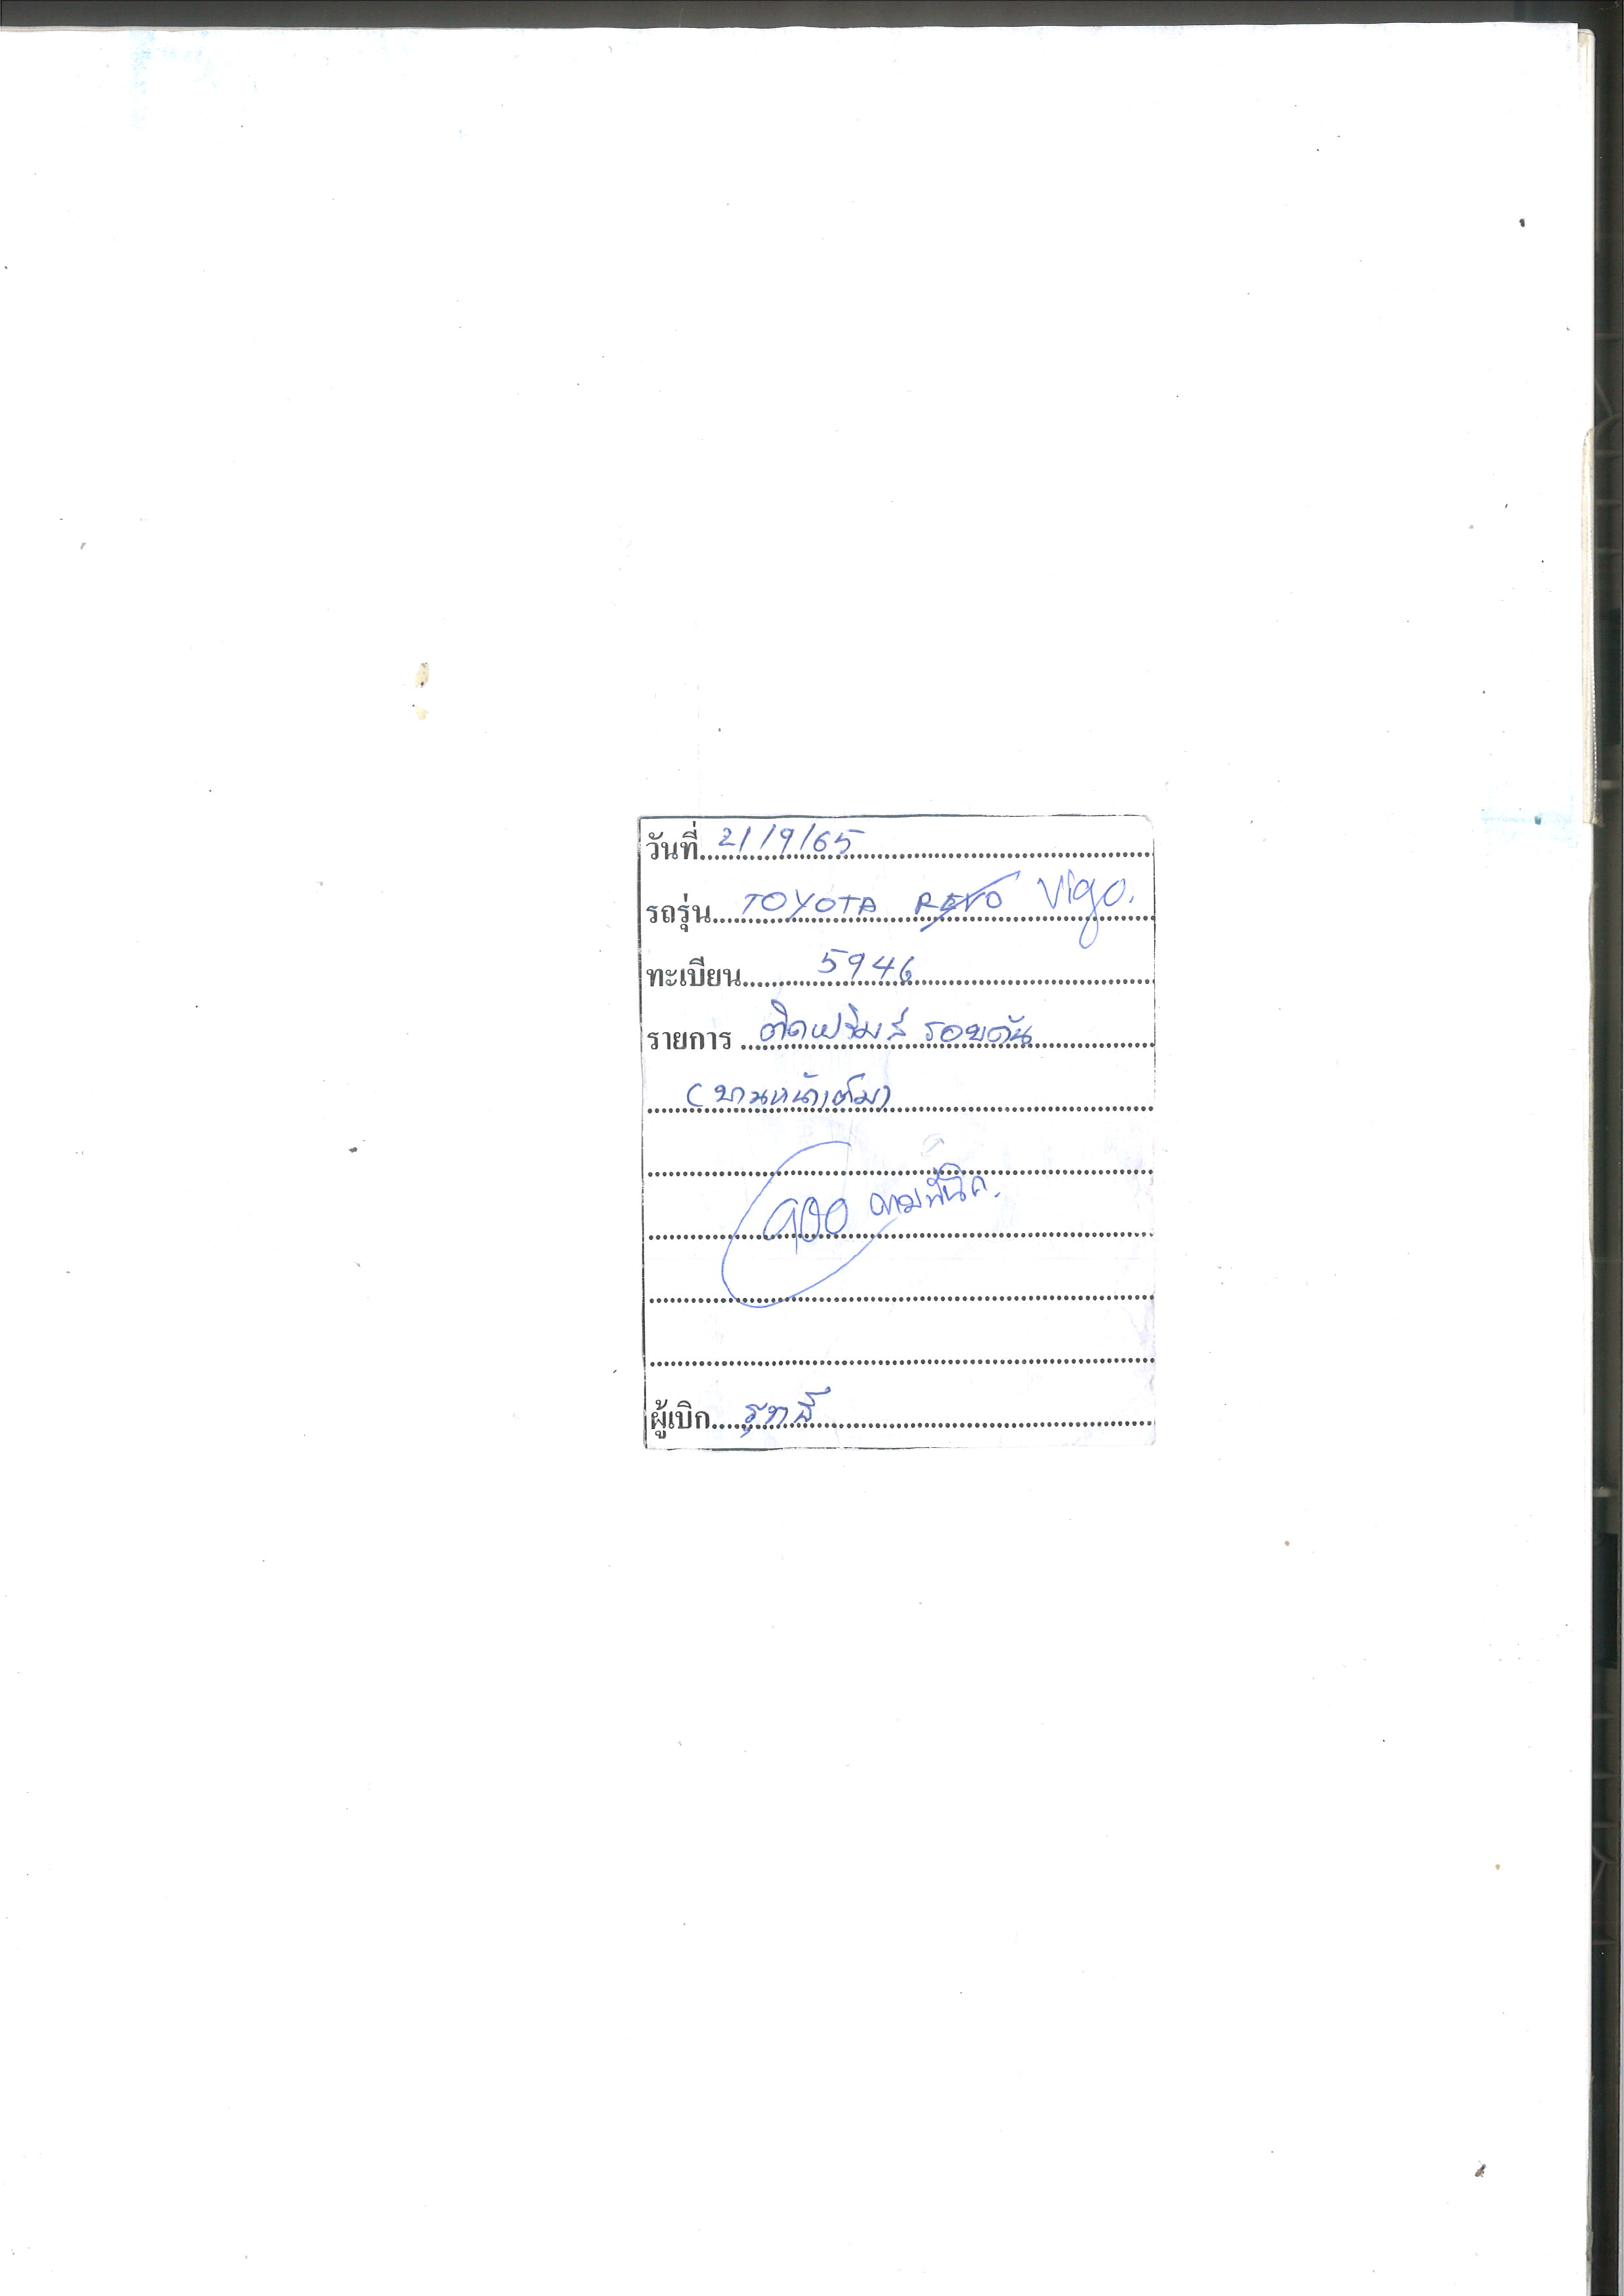 วันที่ 21/9/65
รถรุ่น TOYOTA REVO Vigo.
ทะเบียน 5946
รายการ ติดฟิล์มส์ รอบคัน
(บานหน้าเต็ม)
900
ผู้เบิก